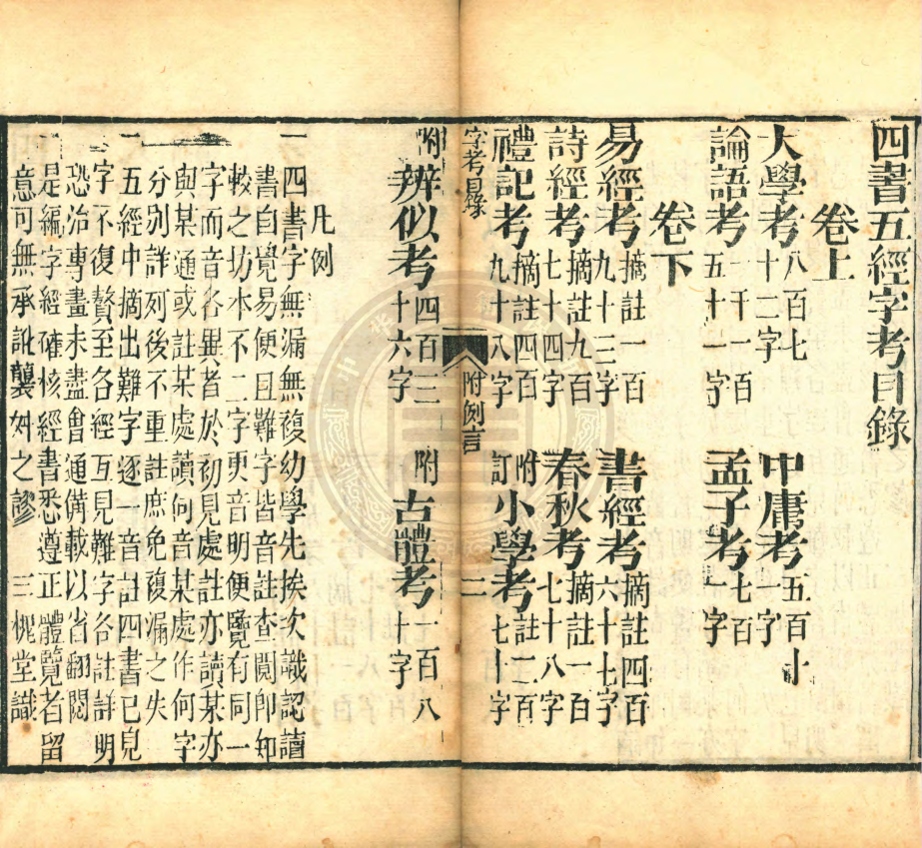 四書五經字考目錄
卷上
大學考八百七十二字 中庸考五百十一字
論語考一千一百五十一字 孟子考七百一字
卷下
易經考摘註一百九十三字 書經考摘註四百六十七字
詩經考摘註九百七十四字 春秋考摘註一百七十八字
禮記考摘註四百九十八字 附訂小學考註二百七十字
字考目錄 附例言 二
附辨似考四百三十六字 附古體考一百八十字
凡例
一四書字無漏無複幼學先挨次識認讀
書自覺易便且難字皆音註查閱即知
較之坊本不二字更音明便覽有同一
字而音各異者於初見處註亦讀某亦
與某通或註某處讀何音某處作何字
分別詳列後不重註庶免複漏之失
一五經中摘出難字逐一音註四書已見
字不復贅至各經互見難字各註詳明
恐治專畫未盡會通備載以省翻閱
一是編字經確核經書悉遵正體覽者留
意可無承訛襲舛之謬 三槐堂識